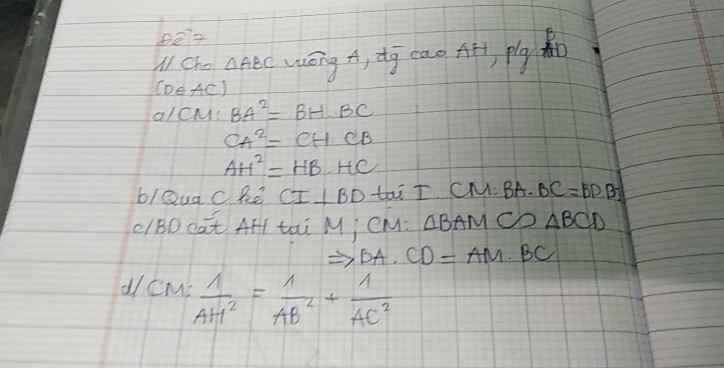 Đề 7
1/ Cho ΔABC vuông A, đg cao AH, p/g BD
(D∈AC)
a/ CM: BA² = BH. BC
CA² = CH. CB
AH² = HB. HC
b/ Qua C kẻ CI ⊥ BD tại I CM: BA. BC = BD. BI
c/ BD cắt AH tại M; CM: ΔBAM ∽ ΔBCD
⇒ BA. CD = AM. BC
d/ CM: 1/AH² = 1/AB² + 1/AC²